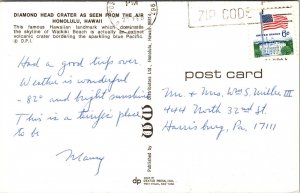 DIAMOND HEAD CRATER AS SEEN FROM THE AIR
HONOLULU, HAWAII
This famous Hawaiian landmark which dominates
the skyline of Waikiki Beach is actually an extinct
volcanic crater bordering the sparkling blue Pacific.
© D.P.I.
Had a good trip over
Weather is wonderful
- 82° and bright sunshine
This is a terrific place
to be
Maury
ZIP CODE
6c
post card
Mr. + Mrs. Wm S. Miller III
444 North 32nd St
Harrisburg, Pa. 17111
Published by
Honolulu, Hawaii
dp
DEXTER PRESS, INC.
WEST NYACK, NEW YORK